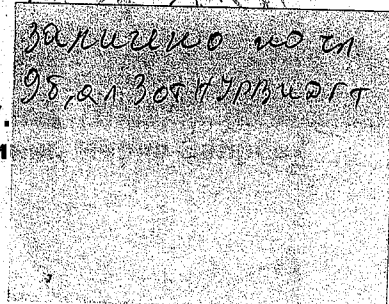 заличено по чл
9б, ал. 3 от НУРВИДГТ